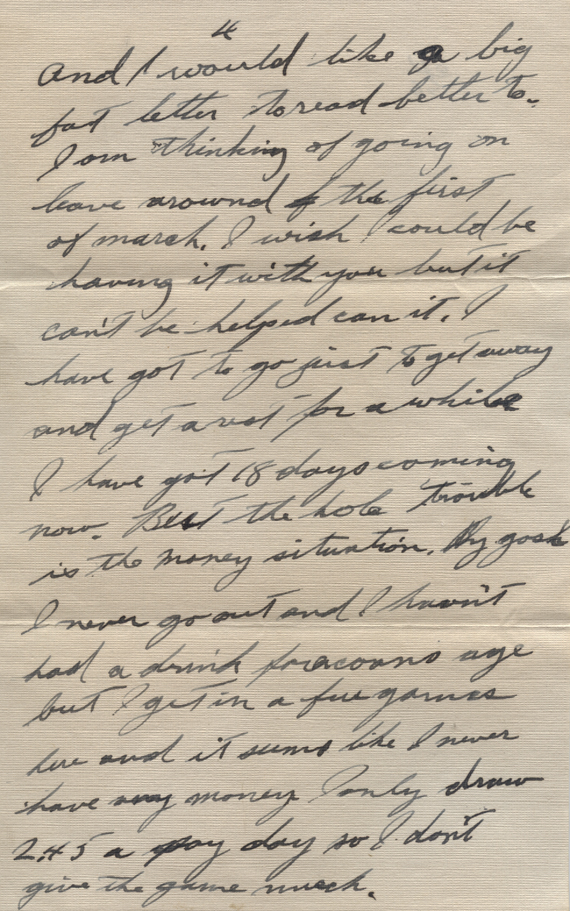 4
And I would like a big
fat letter to read better to.
I am thinking of going on
leave arownd the first
of march. I wish I could be
having it with you but it
can't be helped can it. I
have got to go just to get away
and get a rest for a while
I have got 18 days coming
now. But the hole trouble
is the money situation. My gosh
I never go out and I havn't
had a drink for acoons age
but I get in a few games
here and it sums like I never
have any money I only draw
2.45 a pay day so I don't
give the game much.